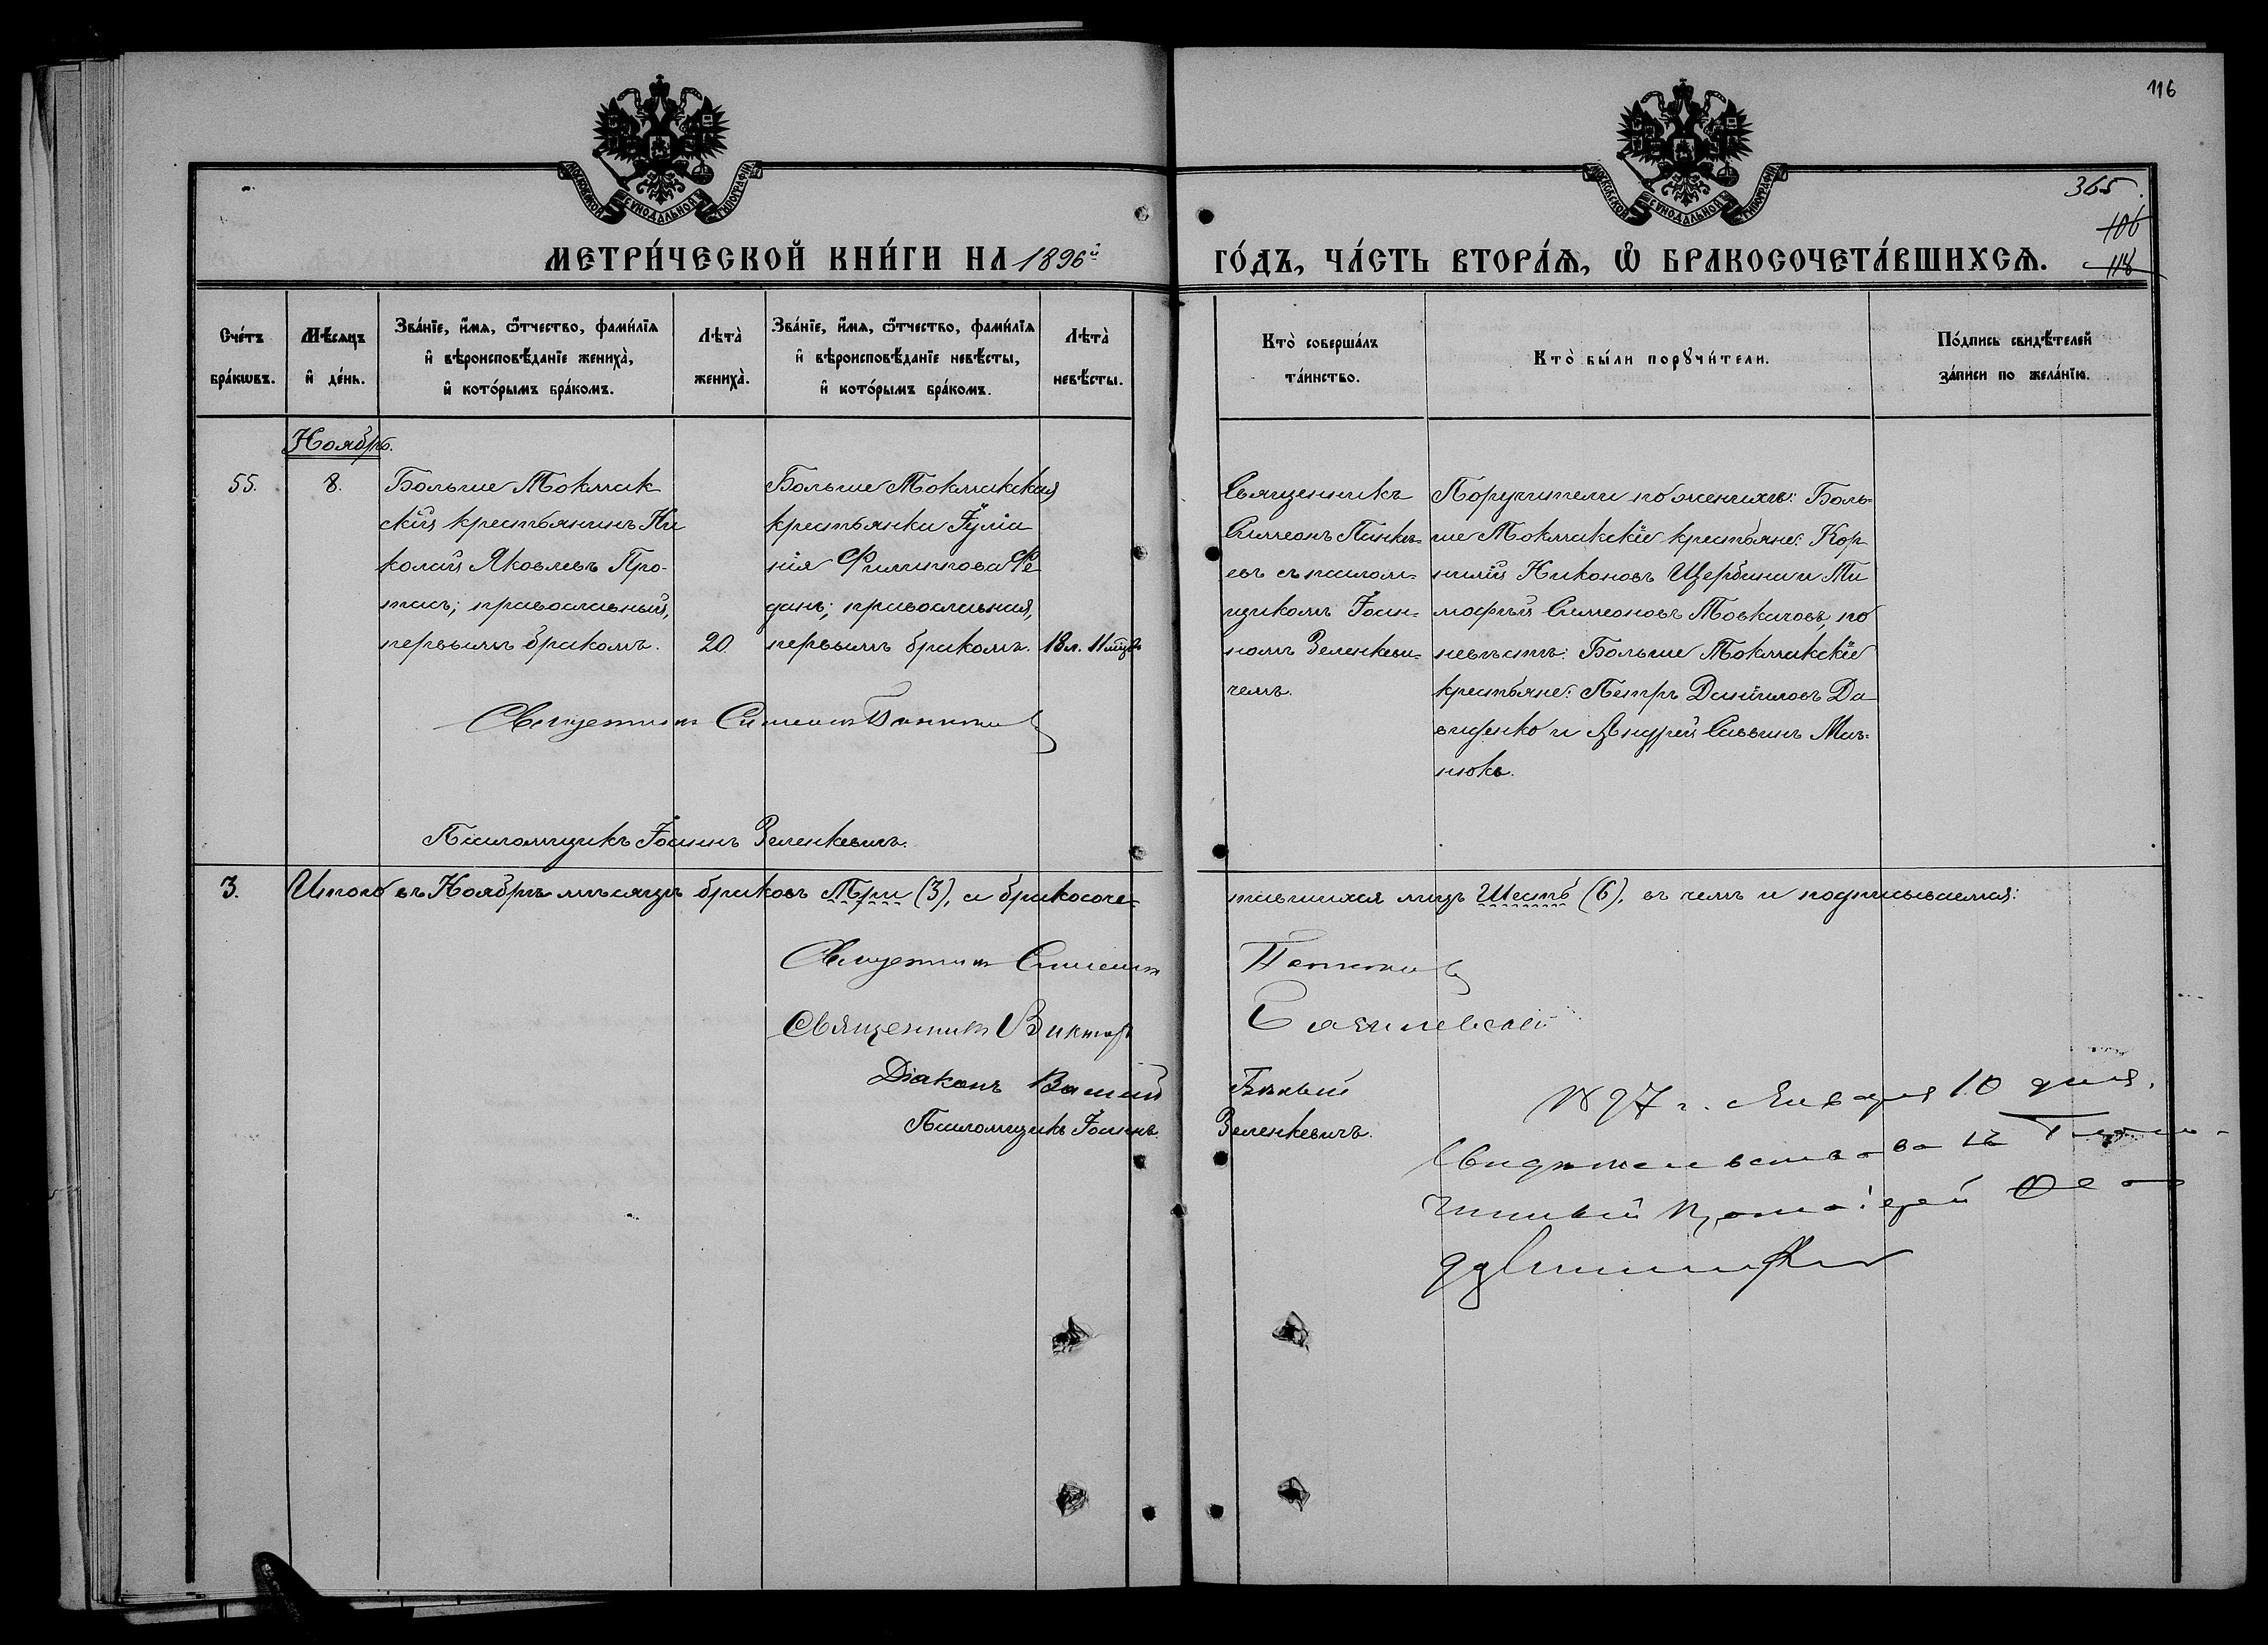 116
365.
106
118
МОСКОВСКОЙ СѴНОДАЛЬНОЙ ТИПОГРАФІИ
МОСКОВСКОЙ СѴНОДАЛЬНОЙ ТИПОГРАФІИ
МЕТРИ́ЧЕСКОЙ КНИ́ГИ НА 1896й
ГО́ДЪ, ЧА́СТЬ ВТОРА́Ѧ, Ѽ БРАКОСОЧЕТА́ВШИХСѦ.
Сче́тъ бра́кѡвъ.
Мѣ́сяцъ и҆ де́нь.
Зва́нїе, и҆́мя, ѻ҆́тчество, фами́лїя
и҆ вѣроисповѣ́данїе жениха̀,
и҆ кото́рымъ бра́комъ.
Лѣта̀ жениха̀.
Зва́нїе, и҆́мя, ѻ҆́тчество, фами́лїя
и҆ вѣроисповѣ́данїе невѣ́сты,
и҆ кото́рымъ бра́комъ.
Лѣта̀ невѣ́сты.
Кто̀ соверша́лъ
та́инство.
Кто̀ бы́ли порꙋчи́тели.
По́дпись свидѣ́телей
за́писи по жела́нїю.
Ноябрь.
55.
8.
Больше Токмак
скій крестьянинъ Ни
колай Яковлевъ Про-
тас; православный,
первымъ бракомъ.
20.
Больше Токмакская
крестьянка Іуліа
нія Филиппова Фе
дань; православная,
первымъ бракомъ.
18 л. 11 мцвъ
Священникъ
Симеонъ Панке-
евъ съ псалом-
щикомъ Іоан-
номъ Зеленкеви-
чемъ.
Поручители по женихѣ: Боль-
ше Токмакскіе крестьяне: Кор
нилій Никоновъ Щербина и Ти
мофѣй Симеоновъ Товкачовъ, по
невѣстѣ: Больше Токмакскіе
крестьяне: Петръ Даніиловъ Да
виденко и Андрей Саввинъ
нюкъ.
Священникъ Симеонъ
Псаломщикъ Іоаннъ Зеленкевичъ.
3.
Итого въ Ноябрѣ мѣсяцѣ браковъ Три (3), а бракосоче-
тавшихся лицъ Шесть (6), въ чемъ и подписываемся:
Священникъ Симеонъ
Священникъ Викторъ
Діаконъ
Бѣлый
Псаломщикъ Іоаннъ Зеленкевичъ.
1897 г. Января 10 дня.
Свидѣтельствовалъ Благо-
чинный Протоіерей